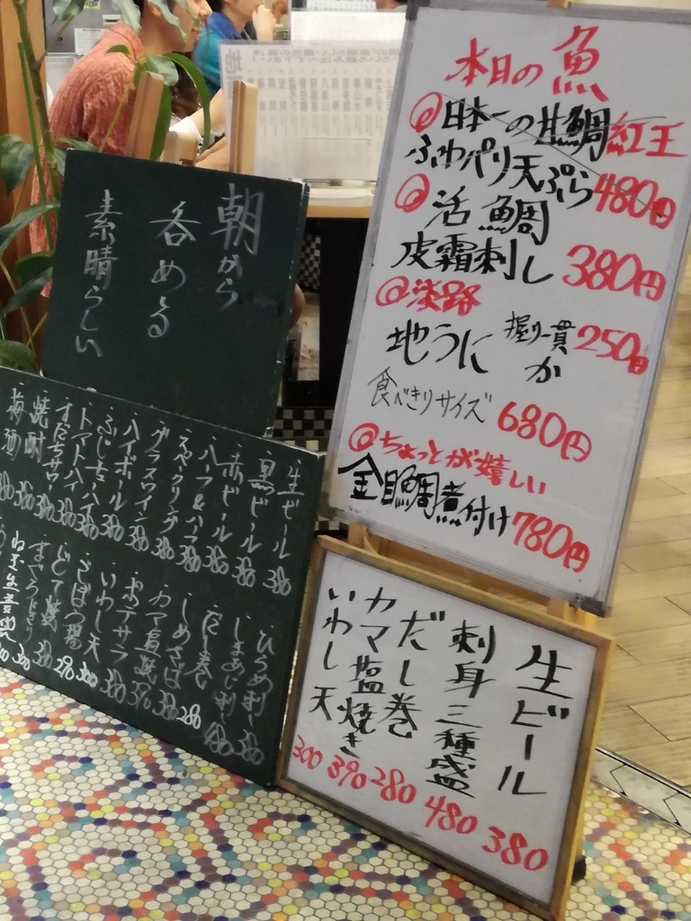 本日の魚
@日本一の生鯛紅王
ふわパリ天ぷら480円
@活鯛
皮霜刺し 380円
@淡路
地うに 握り一貫250円
か
食べきりサイズ 680円
@ちょっとが嬉しい
金目鯛煮付け780円
朝から
呑める
素晴らしい
生ビール 380
黒ビール 380
赤ビール 380
ハーフ&ハーフ 380
スパークリング 380
グラスワイン 380
ハイボール 380
トマトハイ 380
すだちサワー 380
焼酎 380
梅酒
ひらめ刺し
しまあじ刺し
だし巻 280
しめさば
カマ塩焼 390
ポテサラ
いわし天 300
どて焼
生ビール 380
刺身三種盛 480
だし巻 280
カマ塩焼き 390
いわし天 300